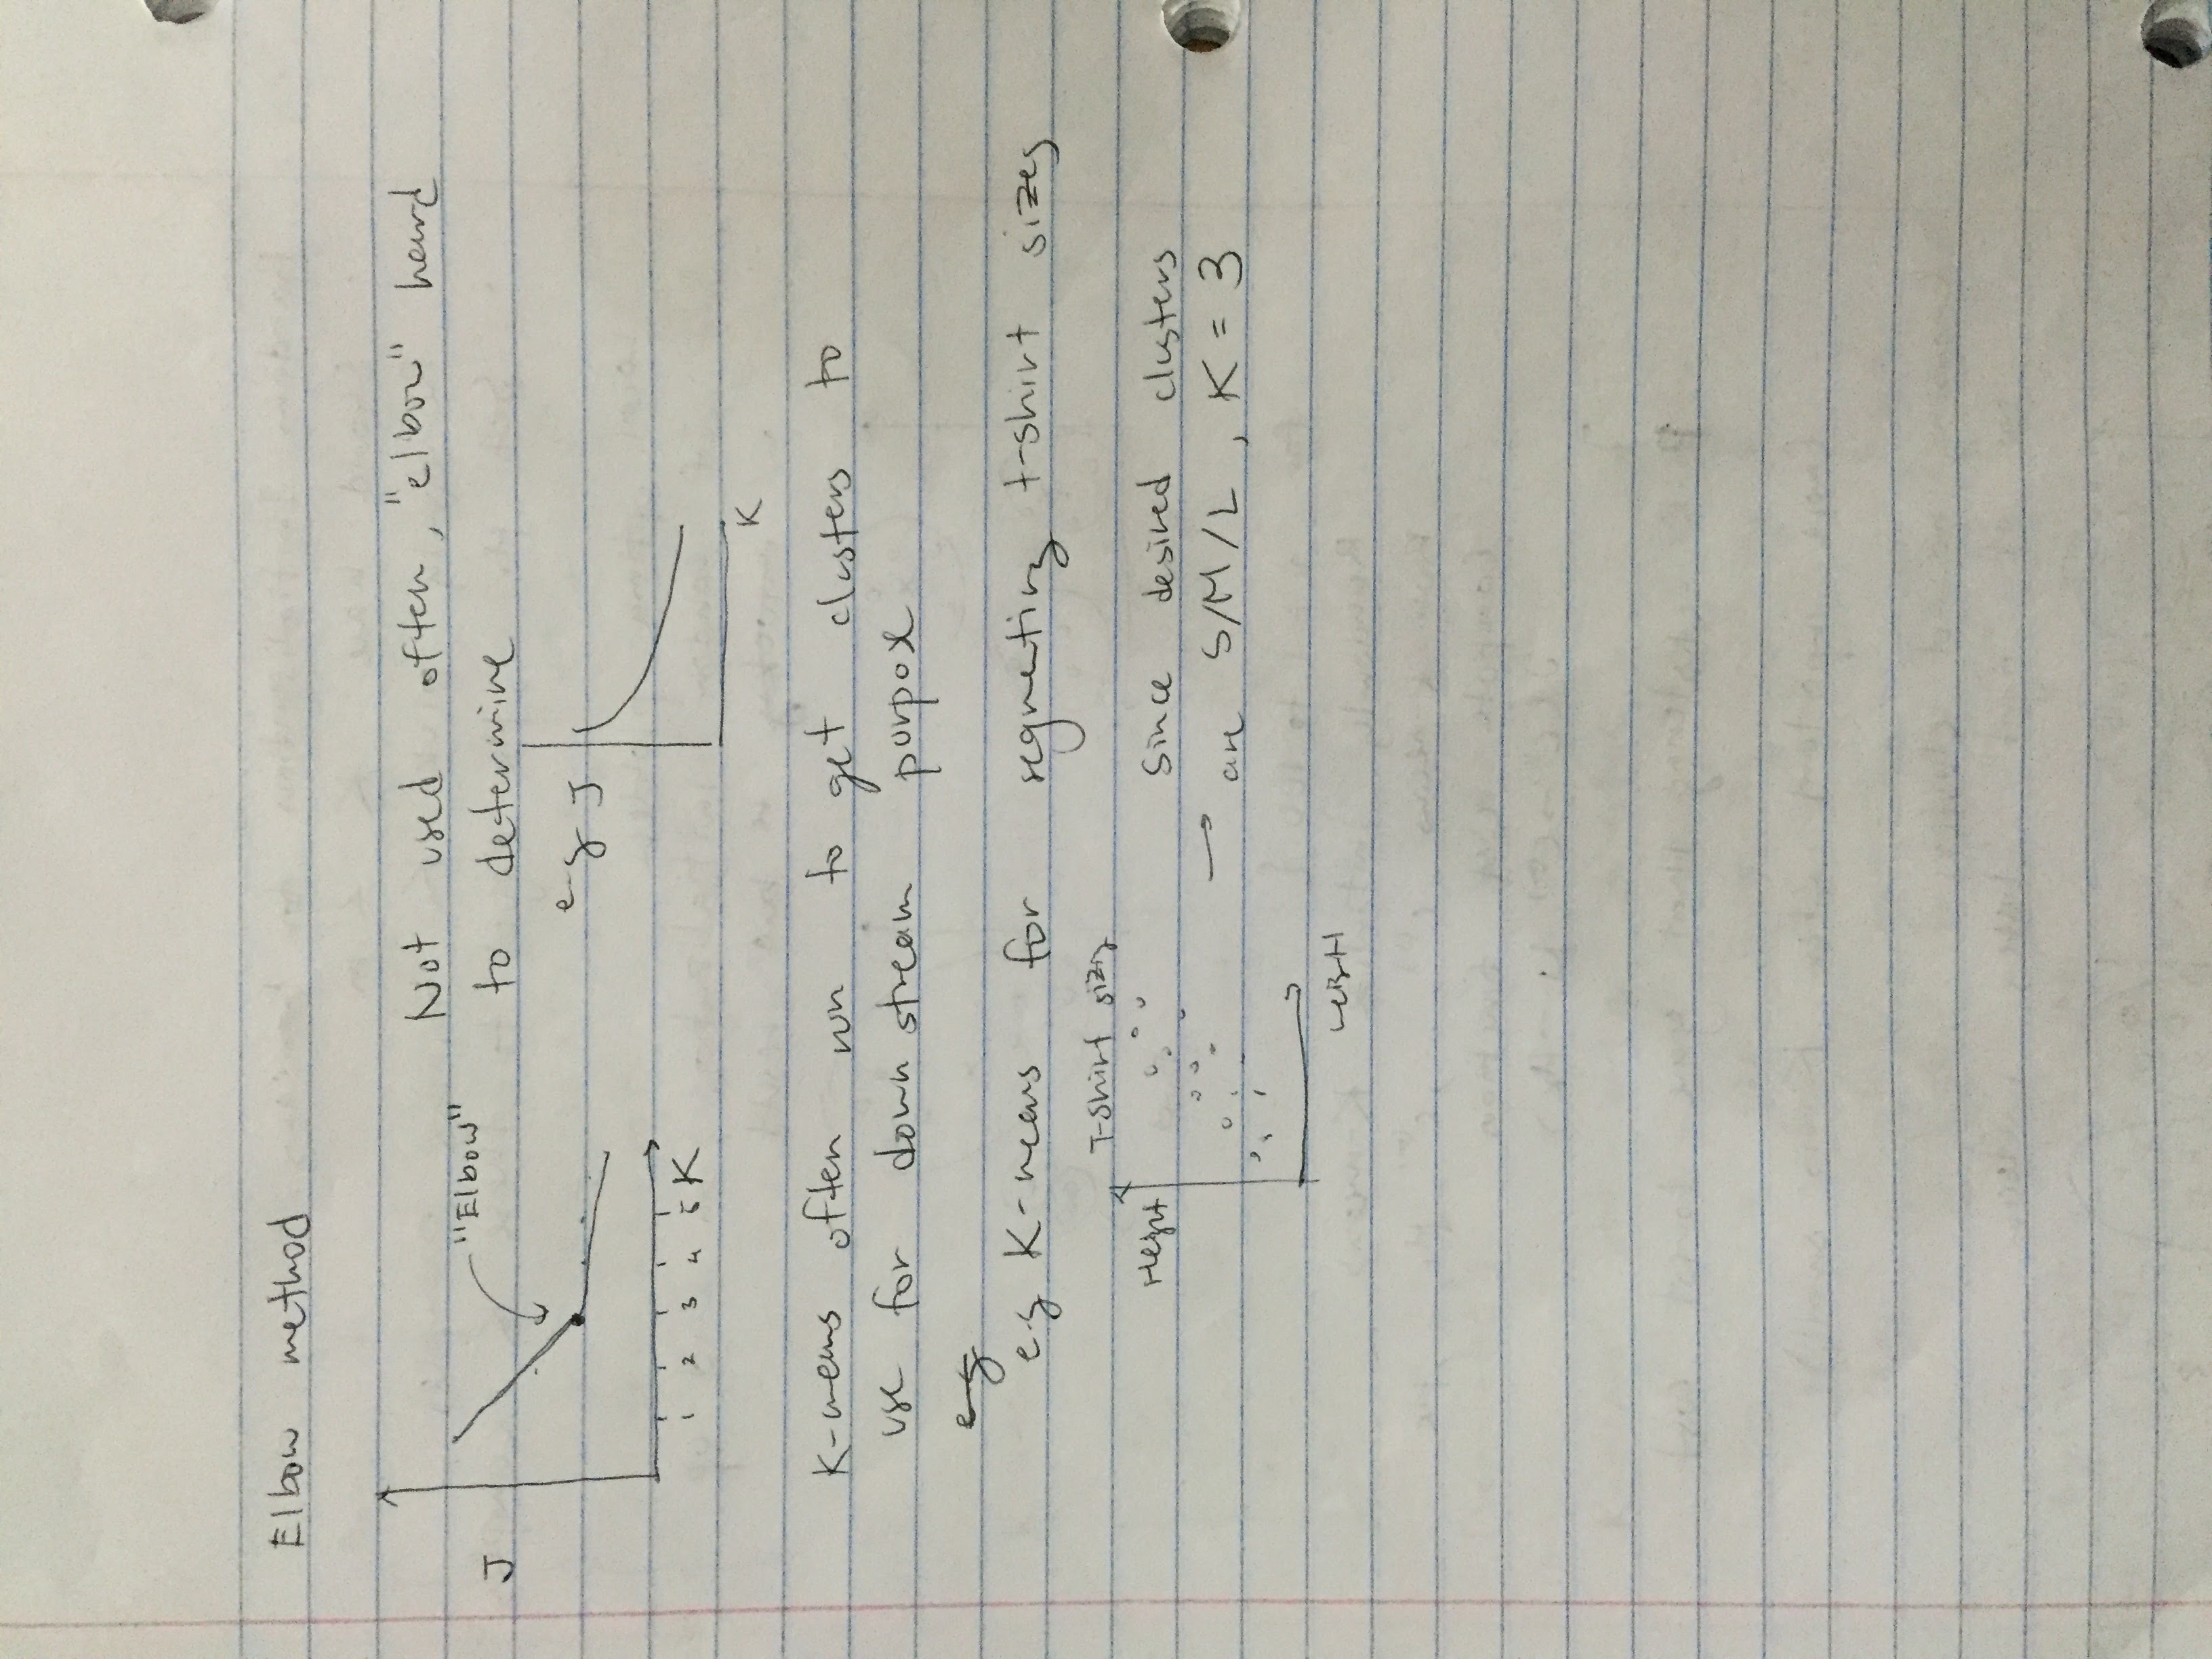 Elbow method
Not used often, "elbow" hard
to determine
J
"Elbow"
1 2 3 4 5 K
e.g J
K
K-means often run to get clusters to
use for down stream purpose
eg
e.g K-means for segmenting t-shirt sizes
T-Shirt sizing
Height
Weight
→ Since desired clusters
are S/M/L, K = 3